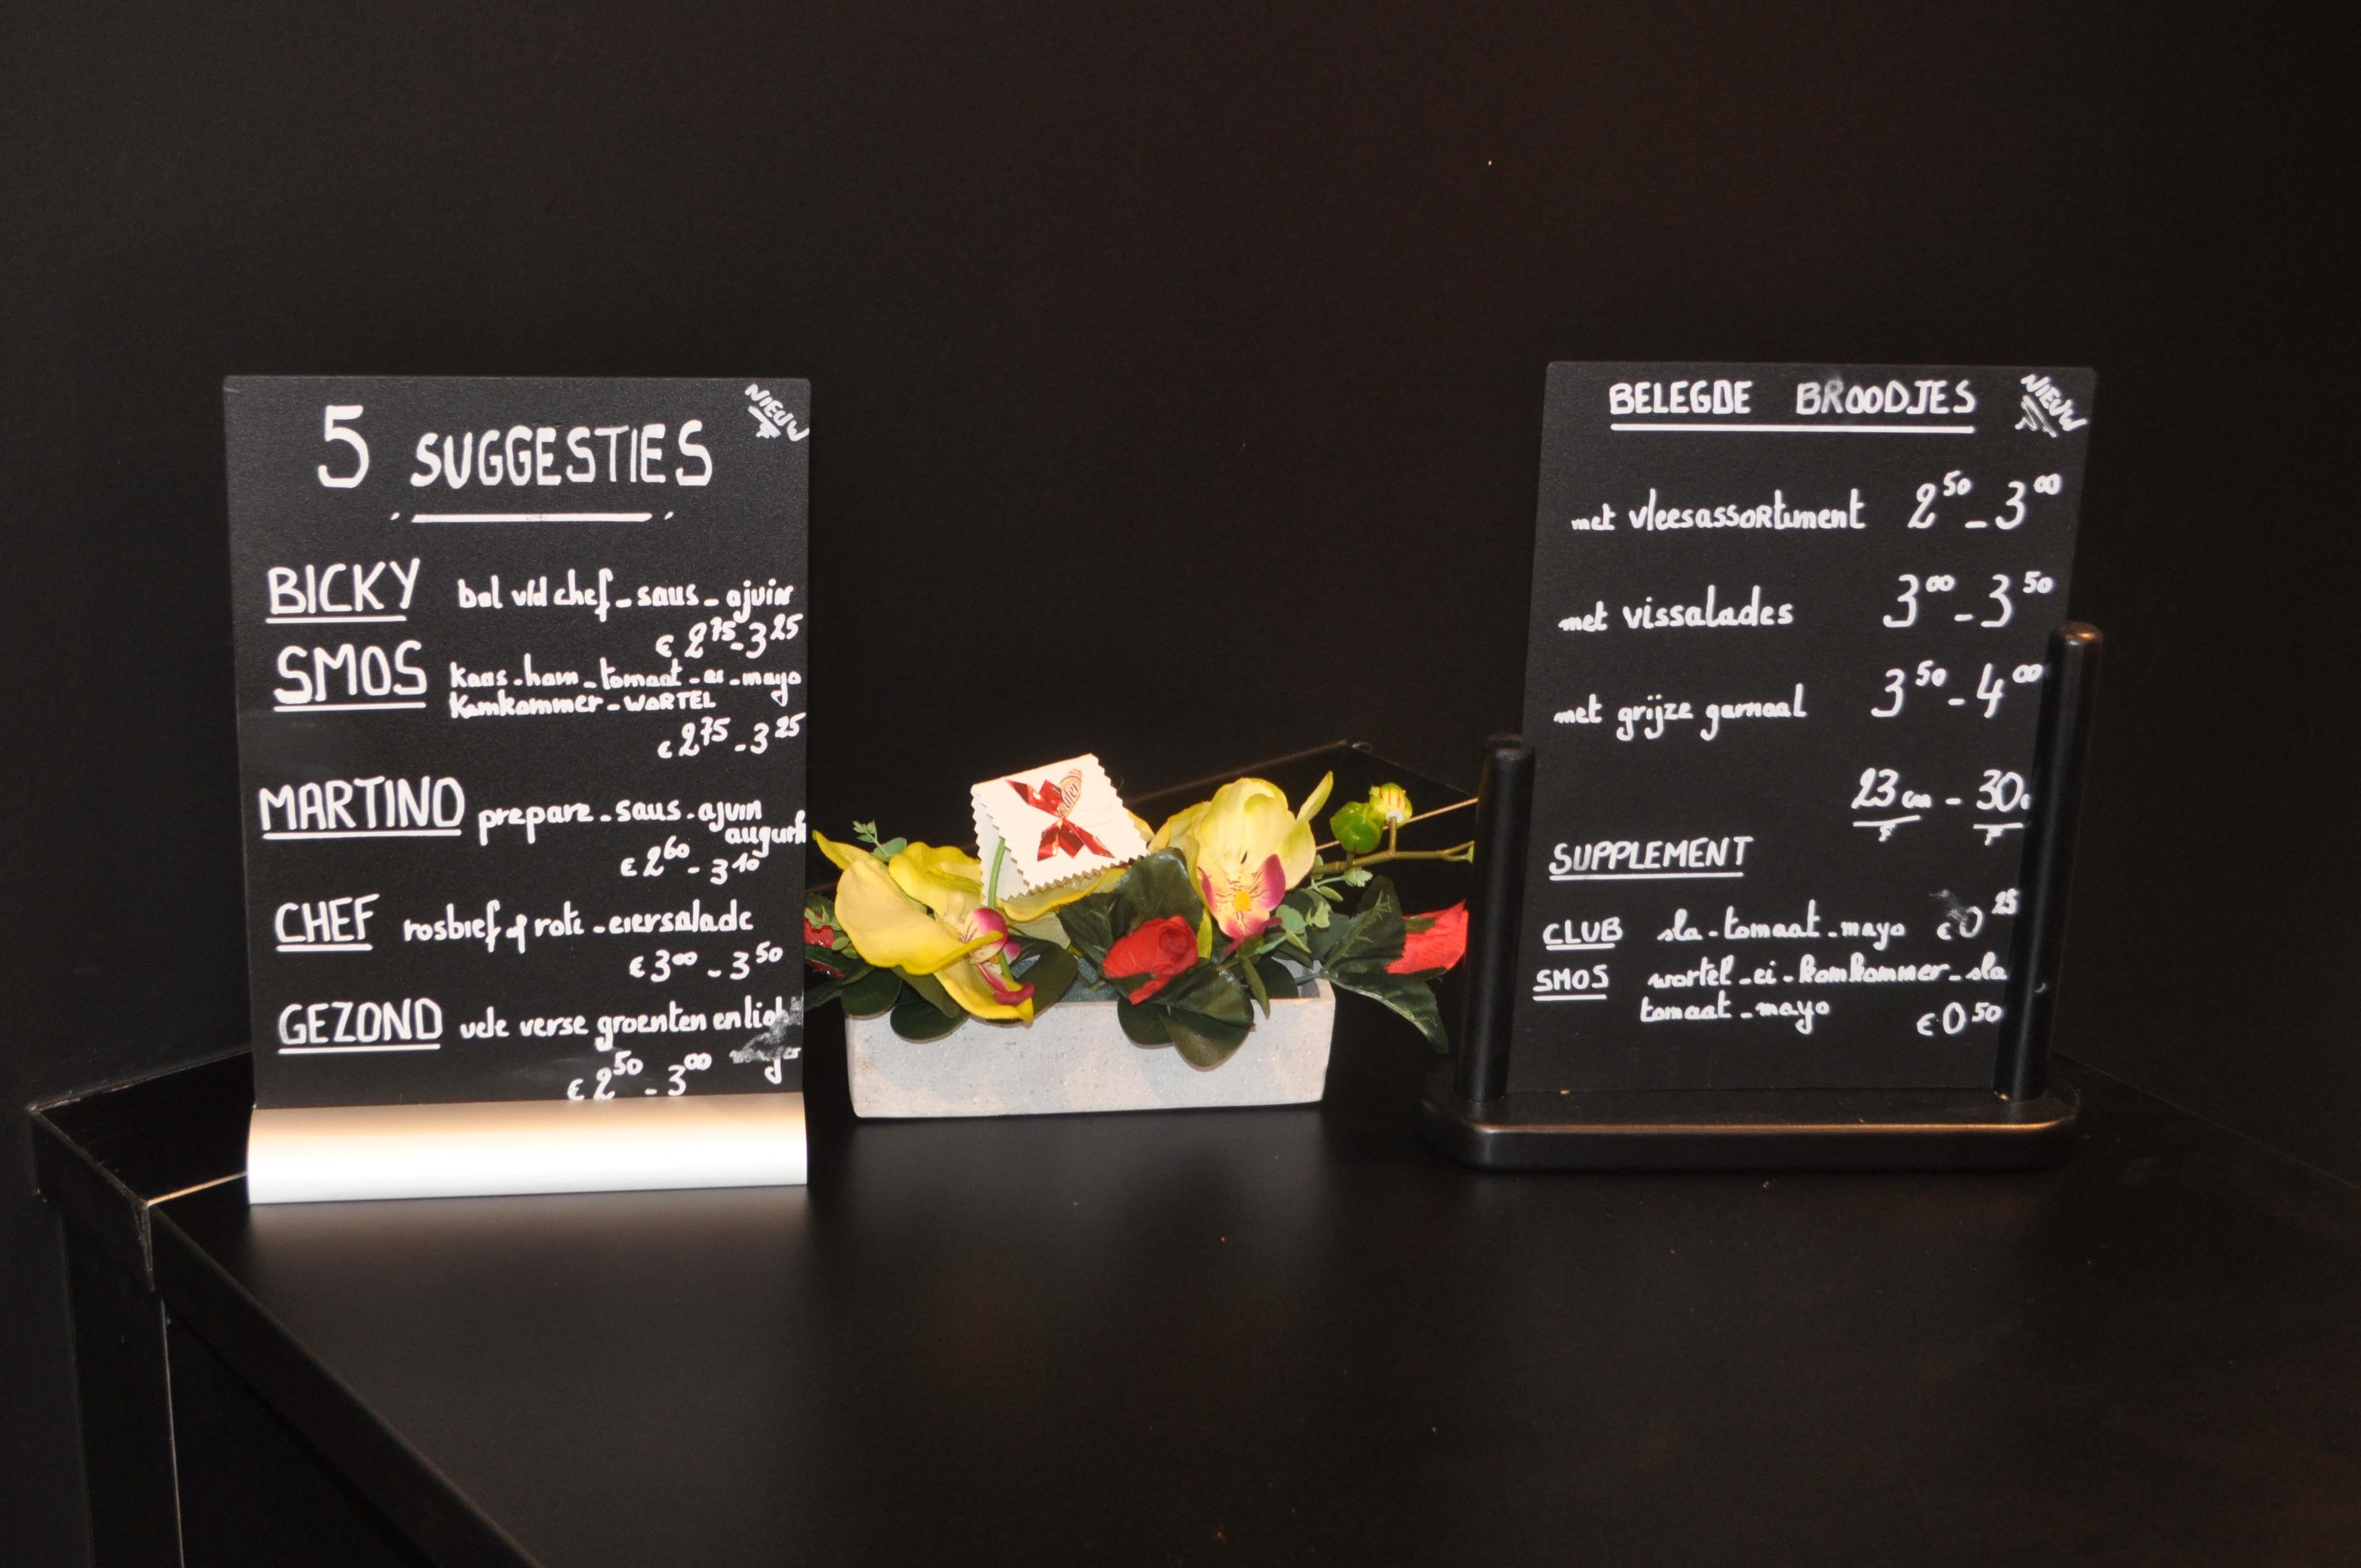 NIEUW
5 SUGGESTIES
BICKY bal v/d chef - saus - ajuin
€ 2 75 - 3 25
SMOS kaas - ham - tomaat - ei - mayo
komkommer - WORTEL
€ 2 75 - 3 25
MARTINO prepare - saus - ajuin
augurk
€ 2 60 - 3 10
CHEF rosbief of roti - eiersalade
€ 3 00 - 3 50
GEZOND vele verse groenten en
€ 2 50 - 3 00
BELEGDE BROODJES NIEUW
met vleesassortiment 2 50 - 3 00
met vissalades 3 00 - 3 50
met grijze garnaal 3 50 - 4 00
23 cm - 30
SUPPLEMENT
CLUB sla - tomaat - mayo € 0 25
SMOS wortel - ei - komkommer - sla
tomaat - mayo
€ 0 50